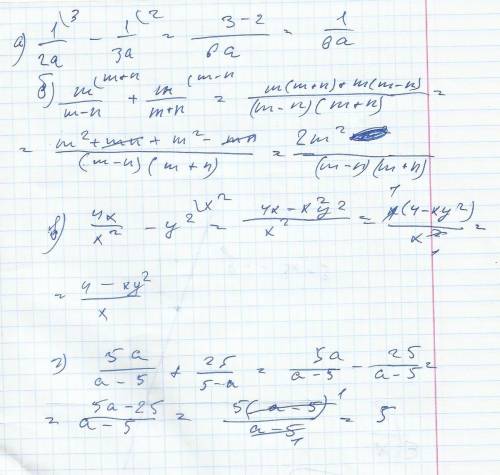 а) 1\3/2a - 1(2/3a = 3-2/6a = 1/6a
б) m(m+n/m-n + m(m-n/m+n = m(m+n)+m(m-n)/(m-n)(m+n) =
= m²+mn+m²-mn/(m-n)(m+n) = 2m²/(m-n)(m+n)
в) 4x/x² - y²\x² = 4x-x²y²/x² = x1(4-xy²)/x²1 =
= 4-xy²/x
г) 5a/a-5 + 25/5-a = 5a/a-5 - 25/a-5 =
= 5a-25/a-5 = 5(a-5)1/a-51 = 5